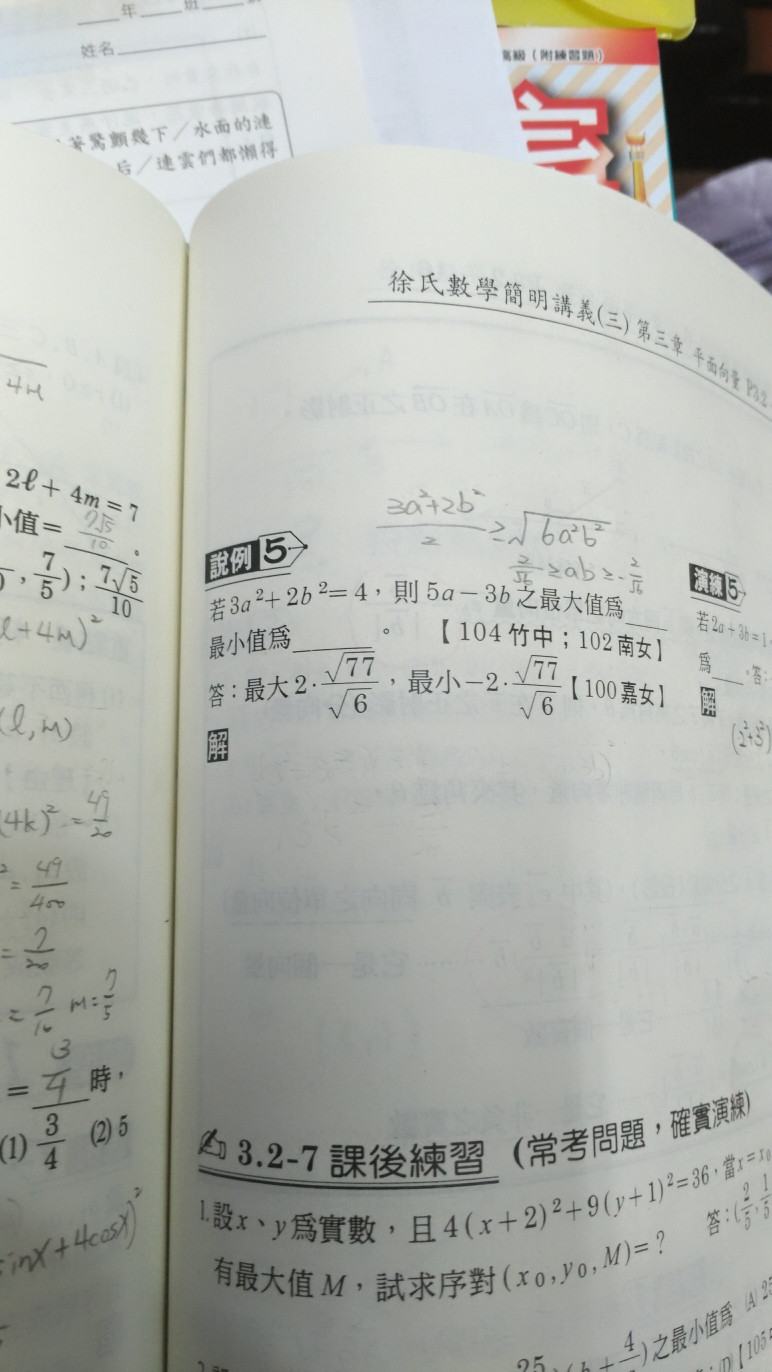 年 班
姓名
著驚顫幾下／水面的漣
后／連雲們都懶得
高級（附練習題）
徐氏數學簡明講義(三) 第三章 平面向量 P3.2
4m
2ℓ + 4m = 7
小值= 7√5/10 。
, 7/5) ; 7√5/10
ℓ+4m)²
(ℓ, m)
(4k)² = 49/20
² = 49/400
= 7/20
= 7/10 m = 7/5
= 3/4 時，
(1) 3/4 (2) 5
sinx + 4cosx)²
(3a²+2b²)/2 ≥ √(6a²b²)
2/√6 ≥ ab ≥ -2/√6
說例 5
若3a²+2b²=4，則5a-3b之最大值為____
最小值為______。 【104竹中；102南女】
答：最大2·√77/√6，最小-2·√77/√6【100嘉女】
解
演練 5
若2a+3b=1
為___，答：
解
(2²+3²)
3.2-7 課後練習 （常考問題，確實演練）
1.設x、y為實數，且4(x+2)²+9(y+1)²=36，當x=x₀
有最大值M，試求序對(x₀,y₀,M)=？ 答：(2/5, 1/5
25
)(b+ 4
)之最小值為 (A) 25
(D)【105